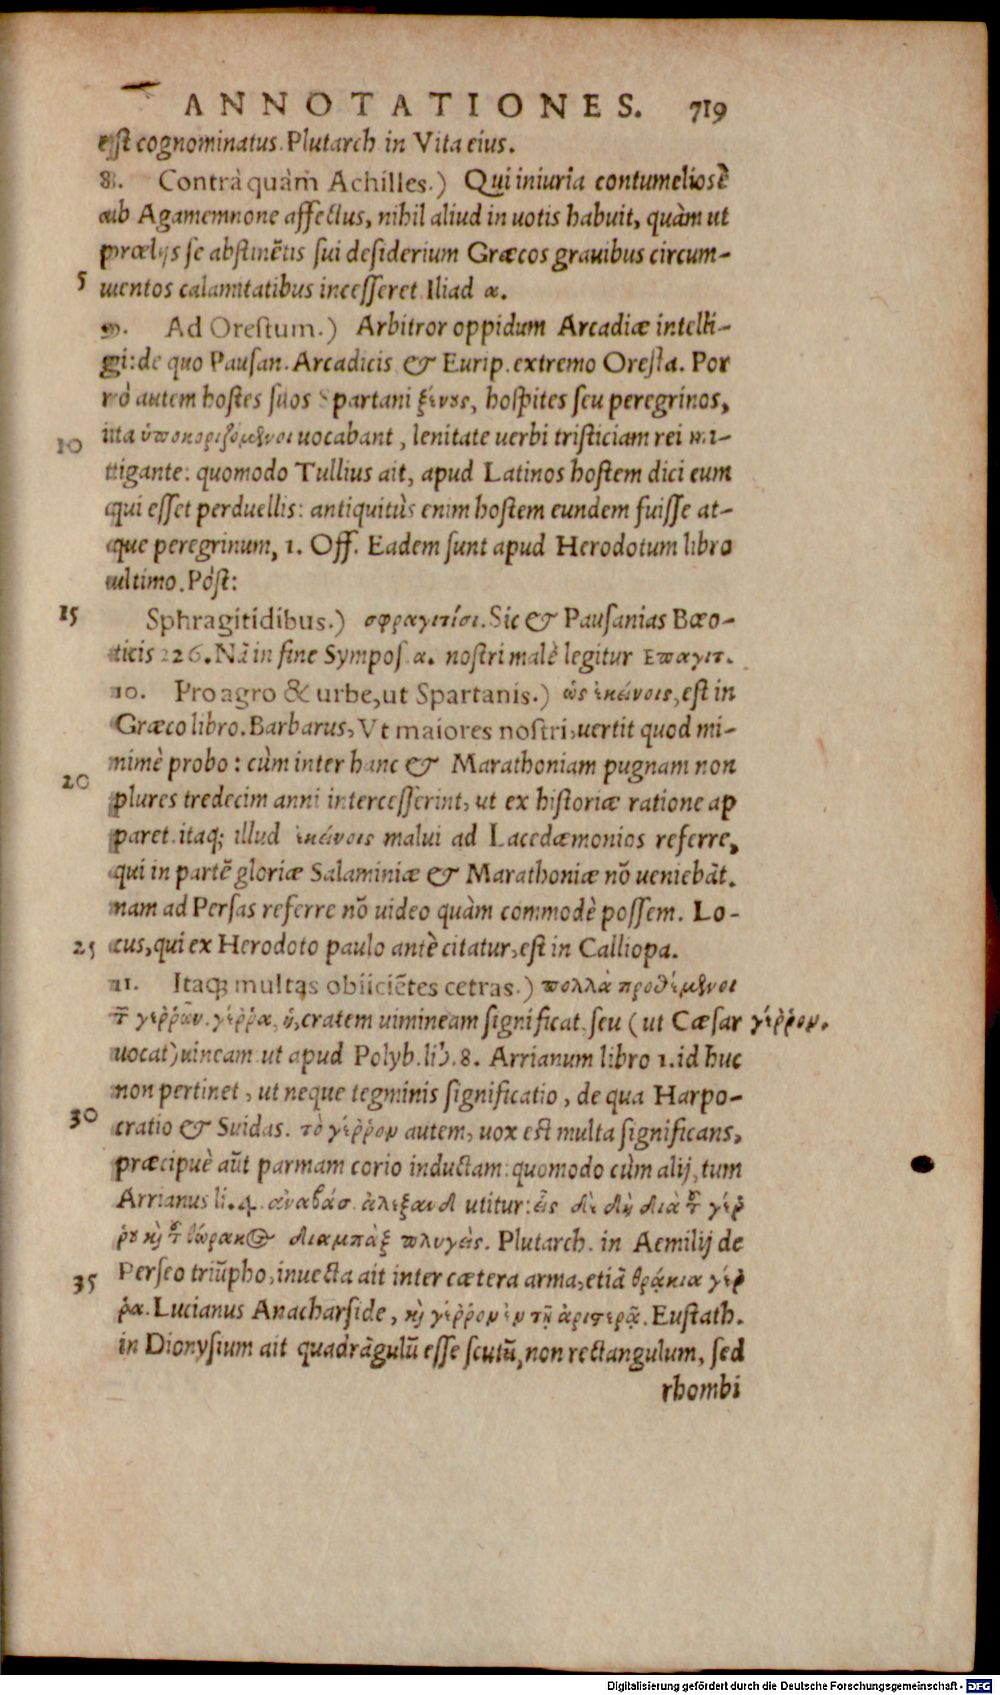 ANNOTATIONES. 719
est cognominatus. Plutarch in Vita eius.
8. Contrà quàm Achilles.) Qui iniuria contumeliosè
ab Agamemnone affectus, nihil aliud in uotis habuit, quàm ut
prœlijs se abstinẽtis sui desiderium Græcos grauibus circum-
5 uentos calamitatibus incesseret. Iliad α.
9. Ad Orestum.) Arbitror oppidum Arcadiæ intelli-
gi: de quo Pausan. Arcadicis & Eurip. extremo Oresta. Por
rò autem hostes suos Spartani ξένους, hospites seu peregrinos,
10 ita ὑποκοριζόμενοι uocabant, lenitate uerbi tristiciam rei mi-
tigante: quomodo Tullius ait, apud Latinos hostem dici eum
qui esset perduellis: antiquitùs enim hostem eundem fuisse at-
que peregrinum, 1. Off. Eadem sunt apud Herodotum libro
ultimo. Pòst:
15 Sphragitidibus.) σφραγιτίσι. Sic & Pausanias Bœo-
ticis 226. Nã in fine Sympos. α. nostri malè legitur Επαγιτ.
10. Pro agro & urbe, ut Spartanis.) ὡς ἐκείνοις, est in
Græco libro. Barbarus, Vt maiores nostri, uertit quod mi-
nimè probo: cùm inter hanc & Marathoniam pugnam non
20 plures tredecim anni intercesserint, ut ex historiæ ratione ap
paret. itaq; illud ἐκείνοις malui ad Lacedæmonios referre,
qui in partẽ gloriæ Salaminiæ & Marathoniæ nõ ueniebãt.
nam ad Persas referre nõ uideo quàm commodè possem. Lo-
25 cus, qui ex Herodoto paulo antè citatur, est in Calliopa.
11. Itaq; multas obiiciẽtes cetras.) πολλὰ προθέμενοι
τῶν γέῤῥων. γέῤῥα, cratem uimineam significat, seu (ut Cæsar γέῤῥον.
uocat) uineam. ut apud Polyb. lib. 8. Arrianum libro 1. id huc
non pertinet, ut neque tegminis significatio, de qua Harpo-
30 cratio & Suidas. τὸ γέῤῥον autem, uox est multa significans,
præcipuè aũt parmam corio inductam: quomodo cùm alij, tum
Arrianus li. 4. ἀναβάσ. ἀλεξανδ utitur: εἷς δὲ δὴ διὰ τοῦ γέῤ
ῥου καὶ τοῦ θώρακος διαμπὰξ πλυγεὶς. Plutarch. in Aemilij de
35 Perseo triũpho, inuecta ait inter cætera arma, etiã θρᾴκια γέῤ
ῥα. Lucianus Anacharside, καὶ γέῤῥον ἐν τῇ ἀριστερᾷ. Eustath.
in Dionysium ait quadrãgulũ esse scutũ, non rectangulum, sed
rhombi
Digitalisierung gefördert durch die Deutsche Forschungsgemeinschaft - DFG